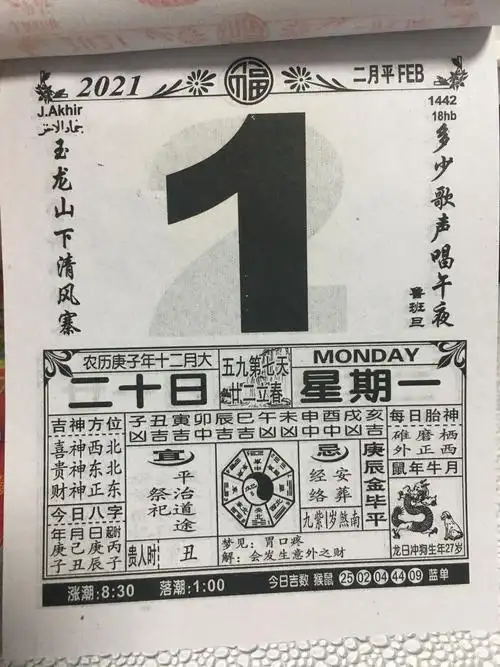 2021 福 二月平 FEB
J.Akhir
جمادالاخر
1442
18hb
玉龙山下清风寨
1
多少歌声唱午夜
鲁班旦
农历庚子年十二月大
二十日
五九第七天
廿二立春
MONDAY
星期一
吉神方位
喜神西北
贵神东北
财神正东
今日八字
年月日时
庚己庚丙
子丑辰子
子丑寅卯辰巳午未申酉戌亥
凶吉吉中中吉凶中中中凶吉
宜
平治道途
祭祀
贵人时 丑
忌
安葬
经络
九紫 1 南煞岁
梦见: 胃口疼
解: 会发生意外之财
庚辰金毕平
每日胎神
碓磨栖
外正西
鼠年牛月
龙日冲狗生年27岁
涨潮:8:30 落潮:1:00 今日吉数 猴鼠 25 02 04 44 09 蓝单